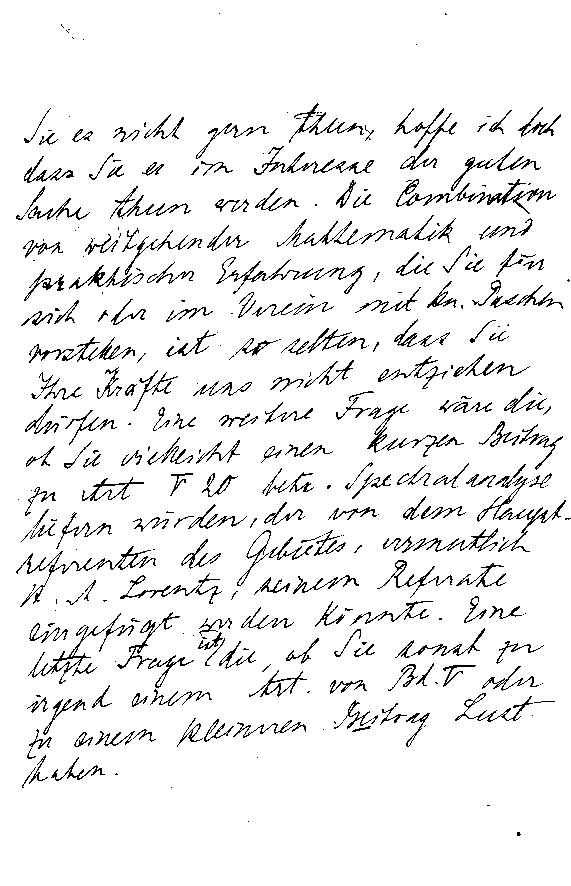 Sie es nicht gern thun, hoffe ich doch
dass Sie es im Interesse der guten
Sache thun werden. Die Combination
von weitgehender Mathematik und
praktischer Erfahrung, die Sie für
sich oder im Verein mit Hn. Paschen
vorstehen, ist so selten, dass Sie
Ihre Kräfte uns nicht entziehen
dürfen. Eine weitere Frage wäre die,
ob Sie vielleicht einen kurzen Beitrag
zu Art V 20 betr. Spectralanalyse
liefern würden, der von dem Haupt-
referenten des Gebietes, vermutlich
H. A. Lorentz, seinem Referate
eingefügt werden könnte. Eine
letzte Frage ist die, ob Sie sonst zu
irgend einem Art. von Bd. V oder
zu einem kleineren Beitrag Lust
haben.